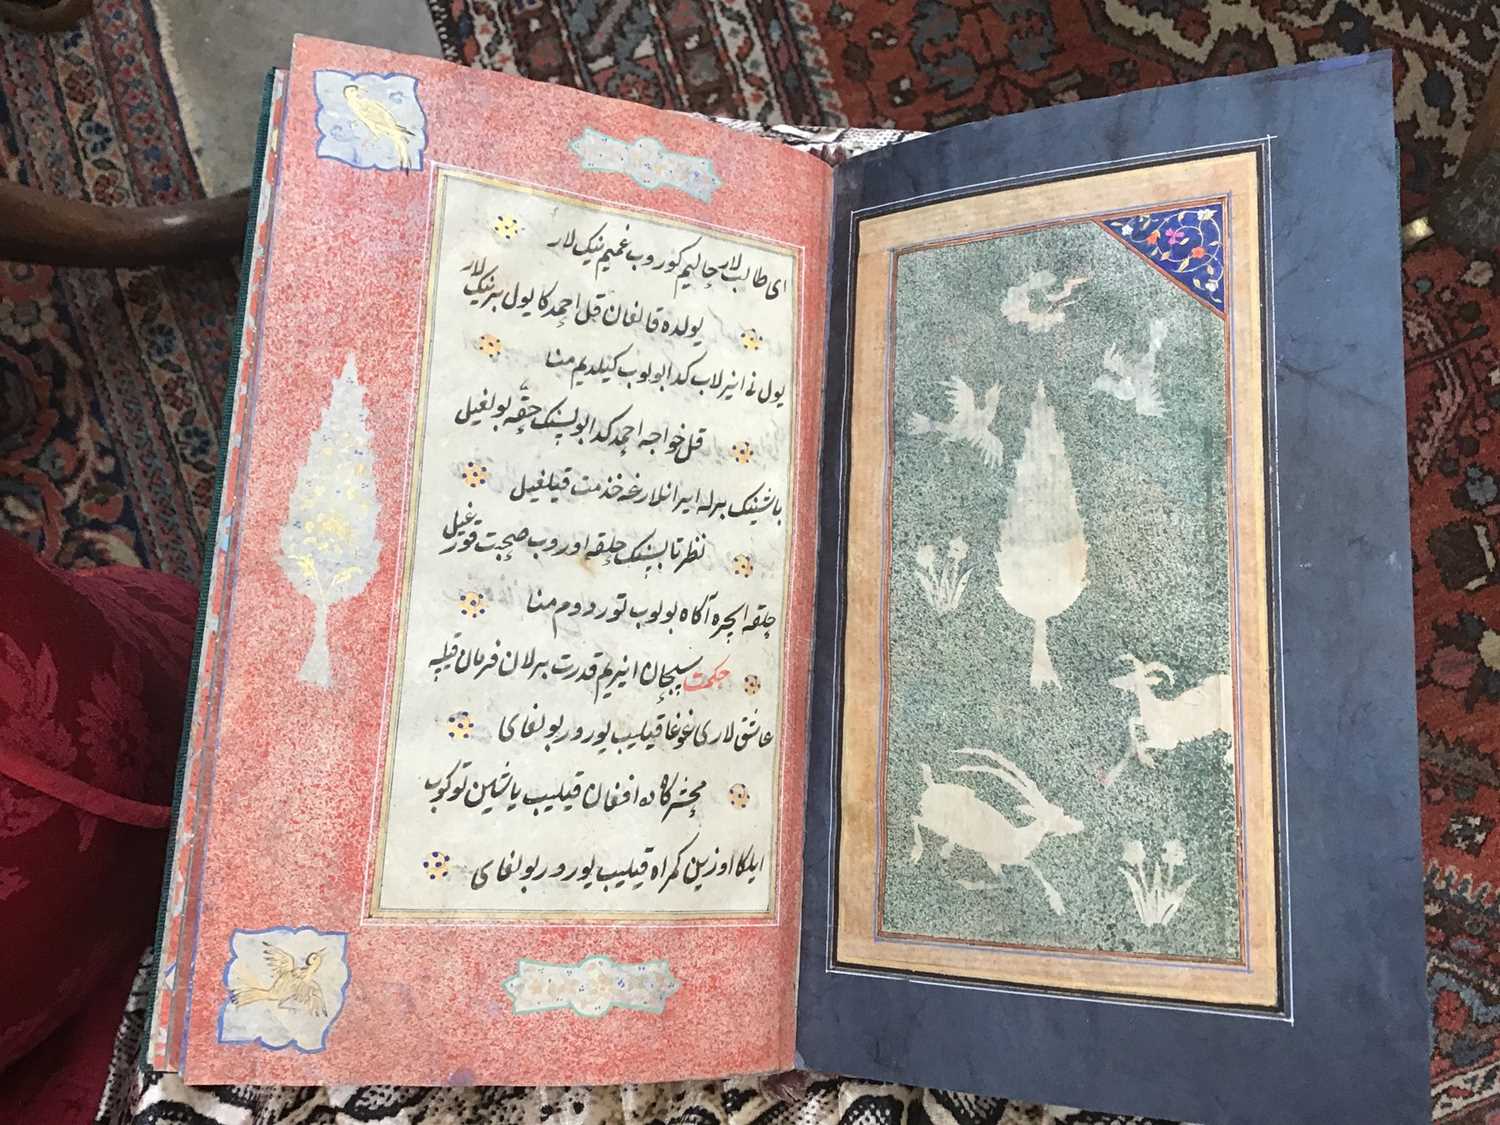 ای طالب لار حالیم کوروب غمیم ینیک لار
یولده قالغان قل احمدکا یول بیرینیک لار
یول نی ایزلاب کدا بولوب کیلدیم منا
قل خواجه احمد کدا بولسنک حقه بولغیل
باشینک بیرله ایرانلارغه خذمت قیلغیل
نظر تابسنک حلقه اوروب صحبت قورغیل
حلقه ایجره آکاه بولوب توردوم منا
حکمت سبحان ایزیم قدرت برلان فرمان قیلیه
عاشق لاری غوغا قیلیب یورور بولغای
محشرکاه ده افغان قیلیب یاشین توکوب
ایلکا اوزین کمراه قیلیب یورور بولغای